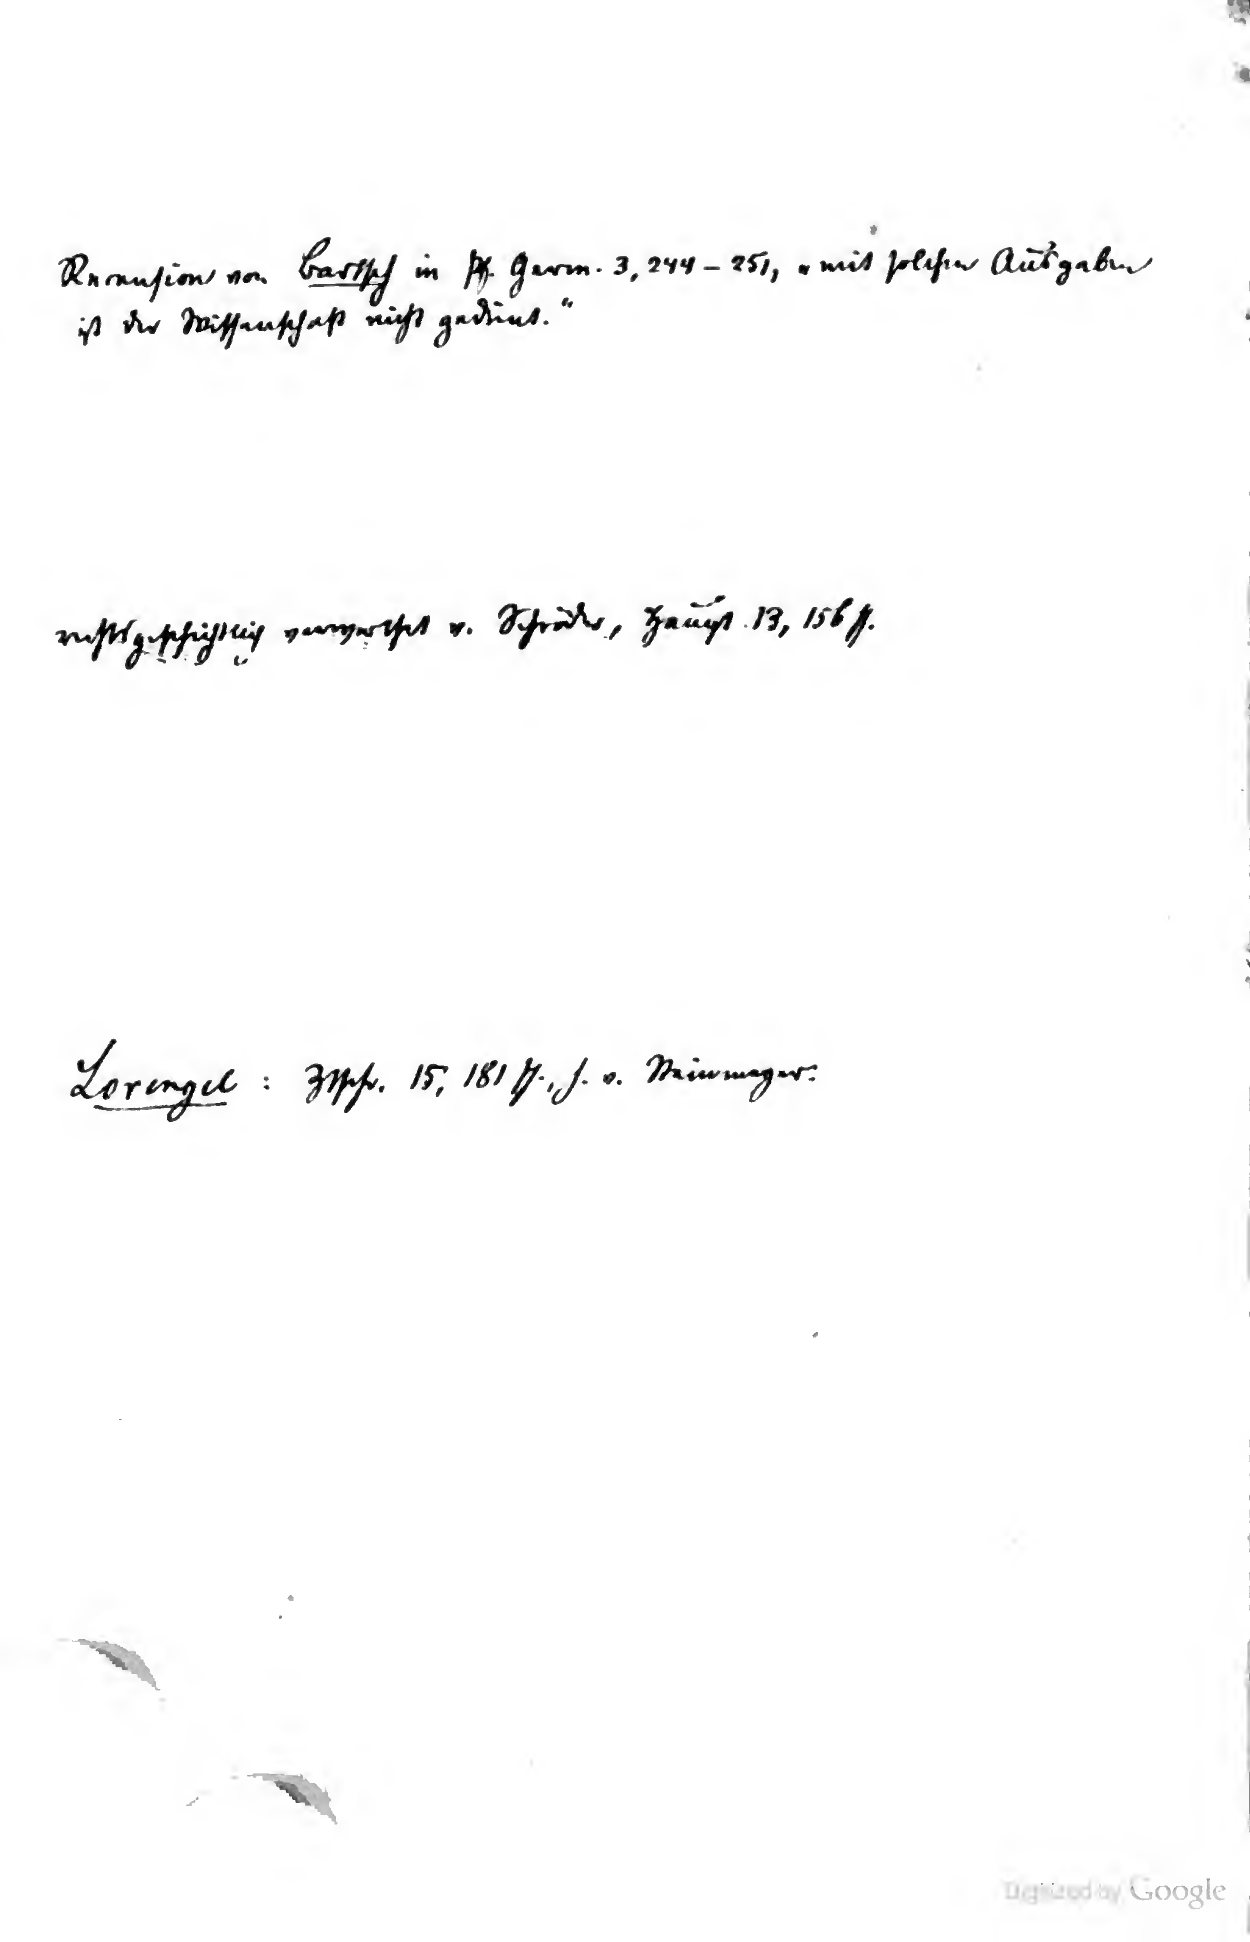 Recension von Bartsch in Pf. Germ. 3, 244 – 251, „mit solchen Ausgaben
ist der Wissenschaft nicht gedient.“
rechtsgeschichtlich verwerthet v. Schröder, Haupt 13, 156 ff.
Lorengel : Ztschr. 15, 181 ff., h. v. Steinmeyer.
Digitized by Google